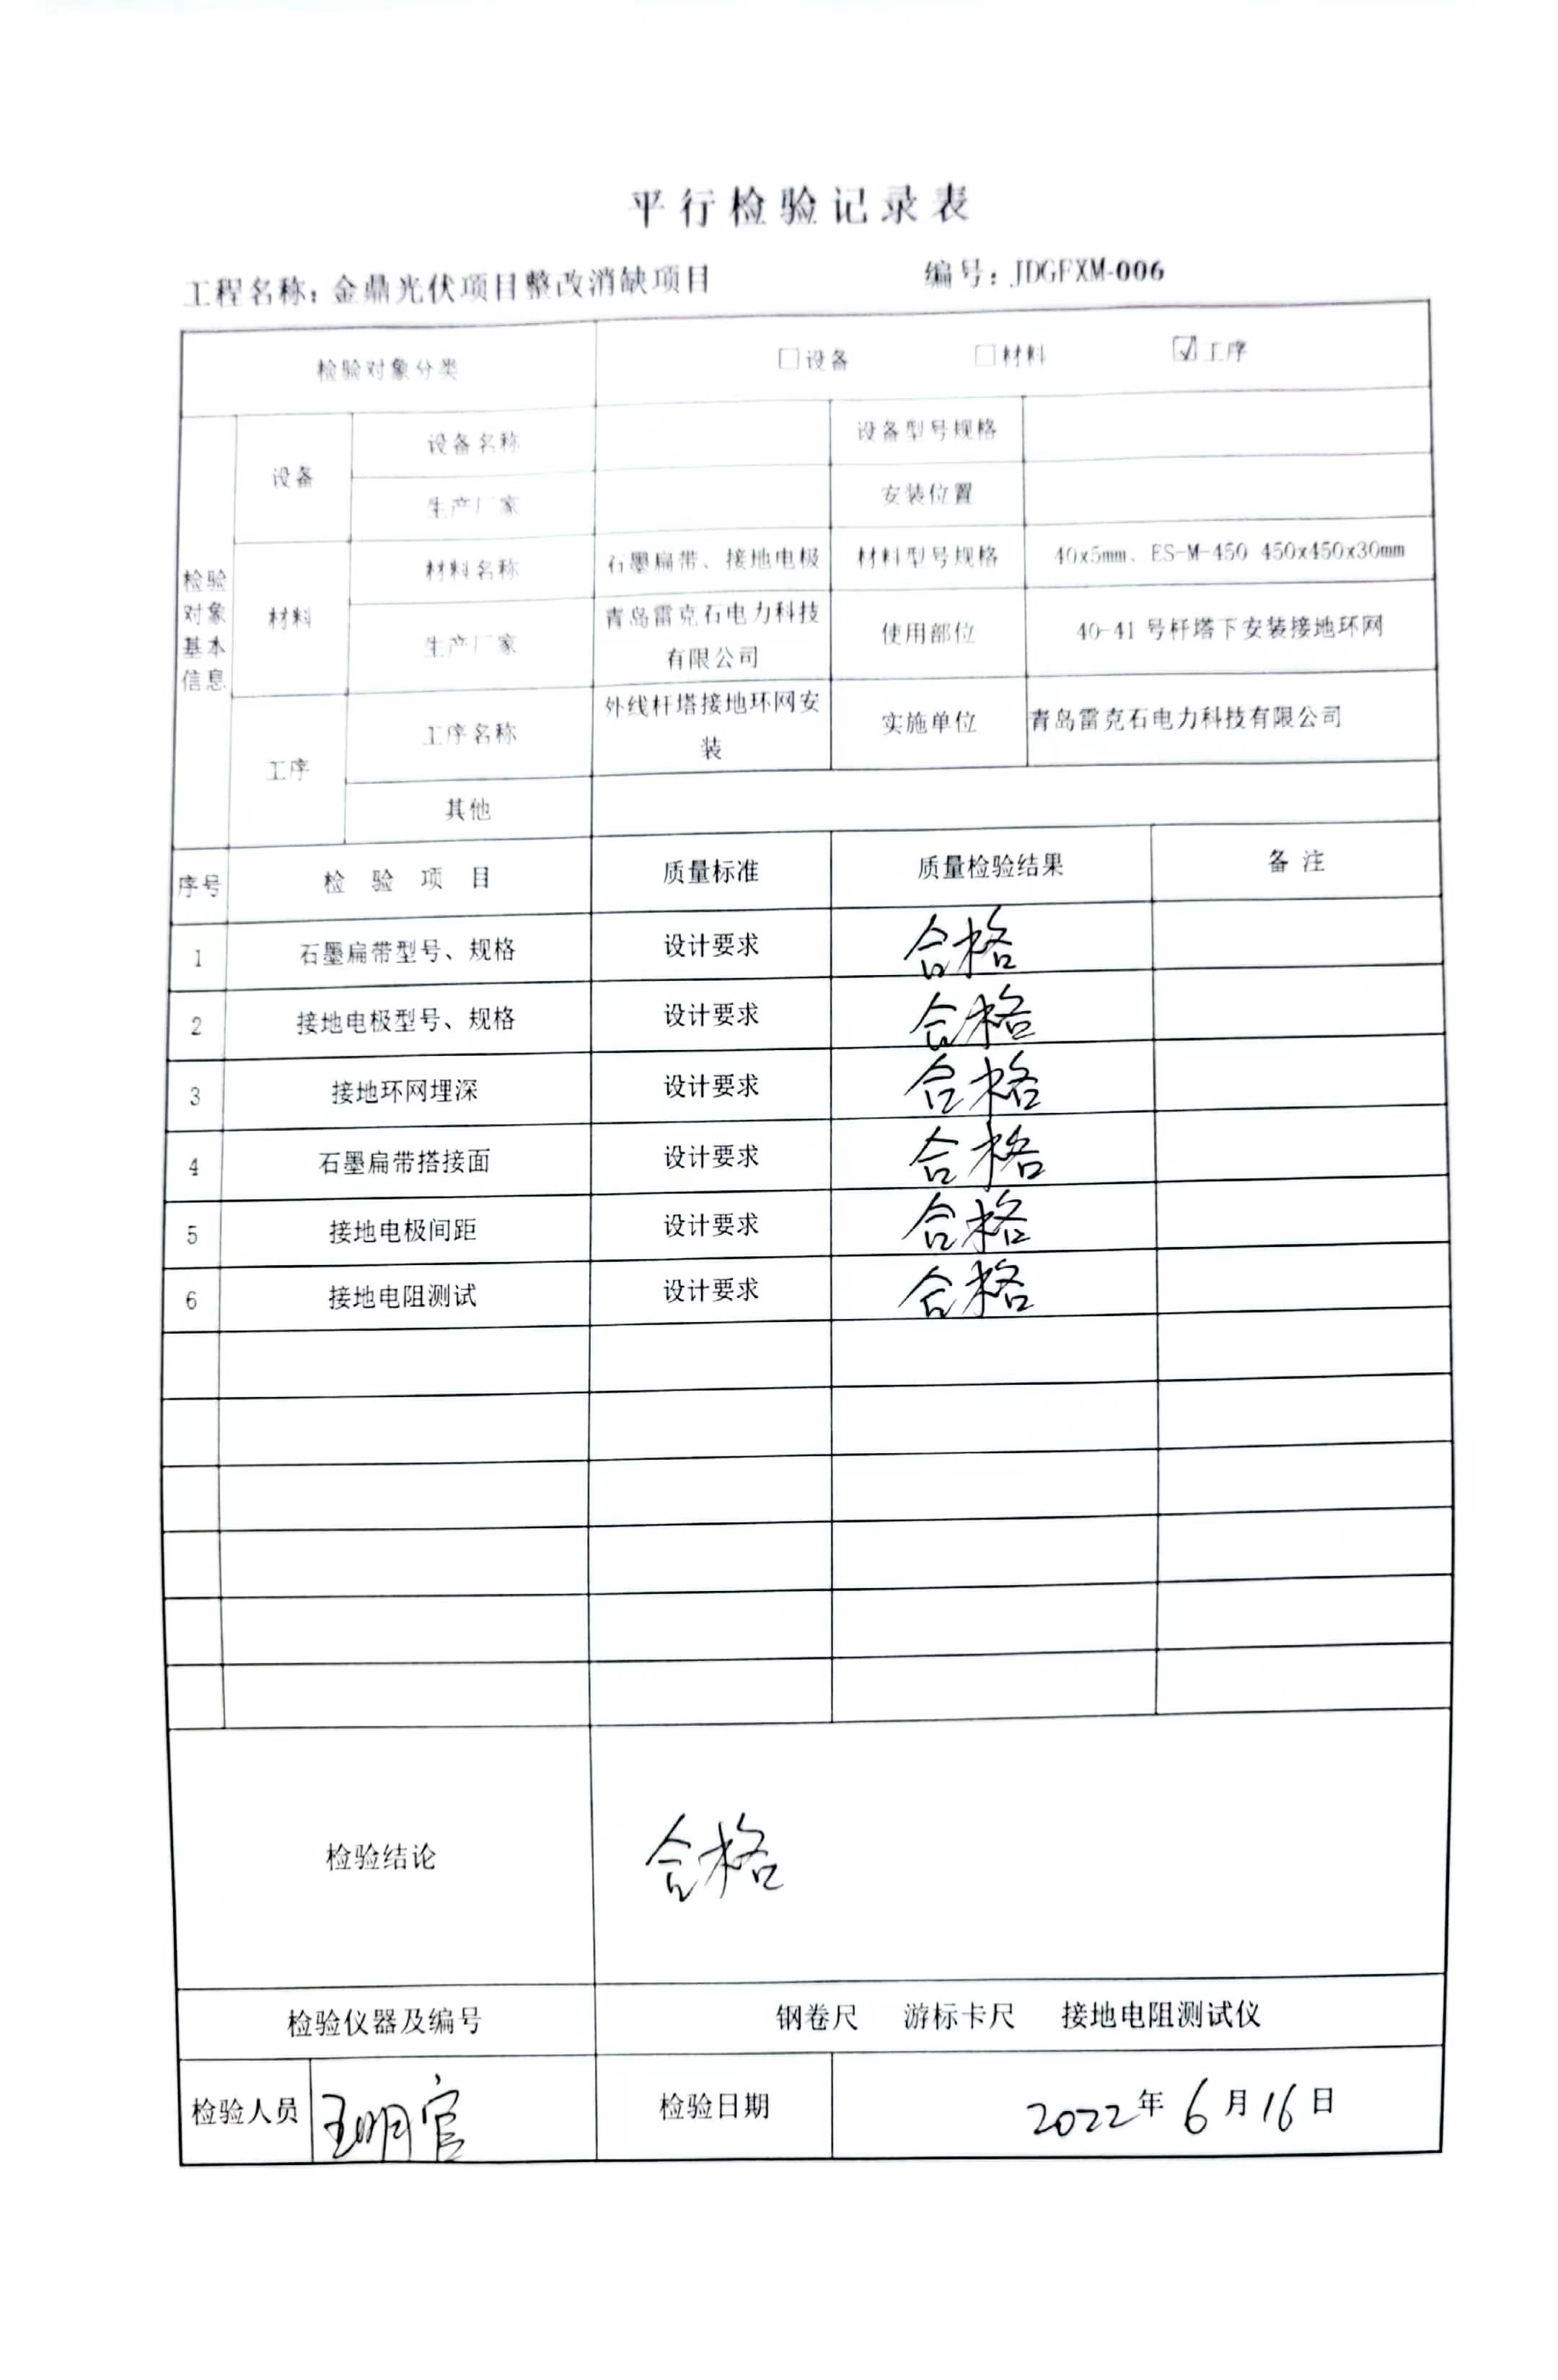 平行检验记录表
工程名称：金鼎光伏项目整改消缺项目 编号：JDGFXM-006
检验对象分类 □设备 □材料 ☑工序
检验对象基本信息
设备 设备名称 设备型号规格
生产厂家 安装位置
材料 材料名称 石墨扁带、接地电极 材料型号规格 40x5mm、ES-M-450 450x450x30mm
生产厂家 青岛雷克石电力科技有限公司 使用部位 40-41 号杆塔下安装接地环网
工序 工序名称 外线杆塔接地环网安装 实施单位 青岛雷克石电力科技有限公司
其他
序号 检 验 项 目 质量标准 质量检验结果 备 注
1 石墨扁带型号、规格 设计要求 合格
2 接地电极型号、规格 设计要求 合格
3 接地环网埋深 设计要求 合格
4 石墨扁带搭接面 设计要求 合格
5 接地电极间距 设计要求 合格
6 接地电阻测试 设计要求 合格
检验结论 合格
检验仪器及编号 钢卷尺 游标卡尺 接地电阻测试仪
检验人员 王明官 检验日期 2022年6月16日